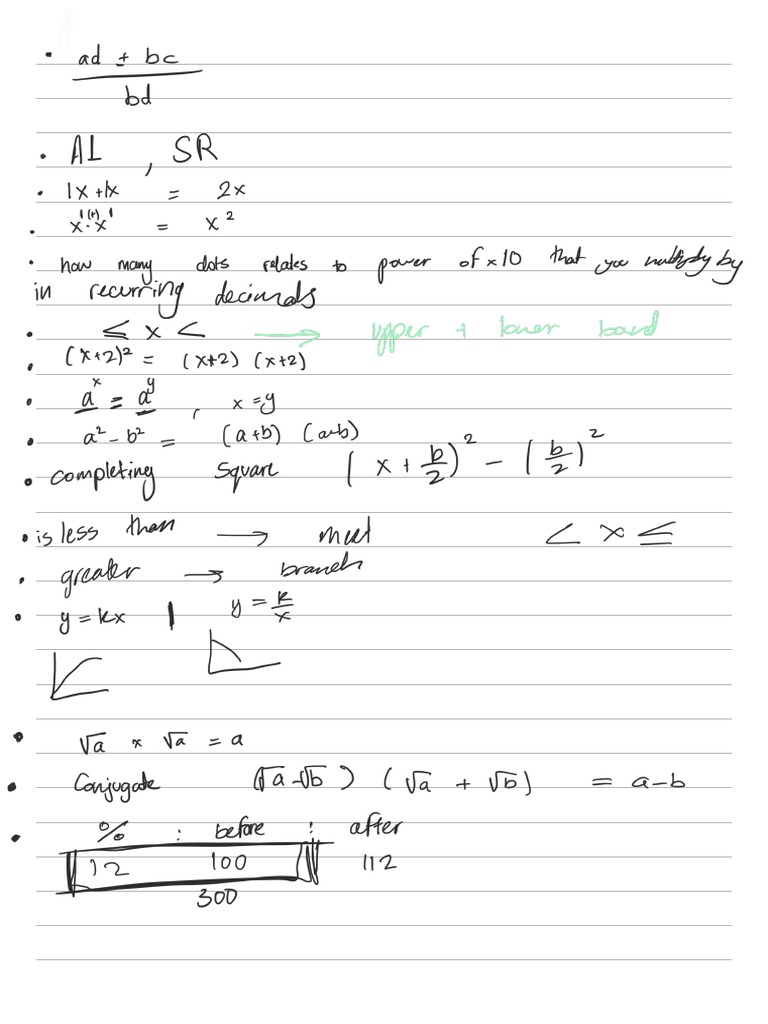 • ad ± bc
bd
• AL , SR
• 1x + 1x = 2x
• x¹⁽⁺⁾·x¹ = x²
• how many dots relates to power of x10 that you multiply by
in recurring decimals
• ≤ x < → upper + lower bound
• (x+2)² = (x+2) (x+2)
• aˣ = aʸ , x = y
• a² - b² = (a+b) (a-b)
• completing square (x + b/2)² - (b/2)²
• is less than → meet < x ≤
• greater → branch
• y = kx | y = k/x
• √a × √a = a
• Conjugate (√a - √b) (√a + √b) = a-b
• % : before : after
12 100 112
300